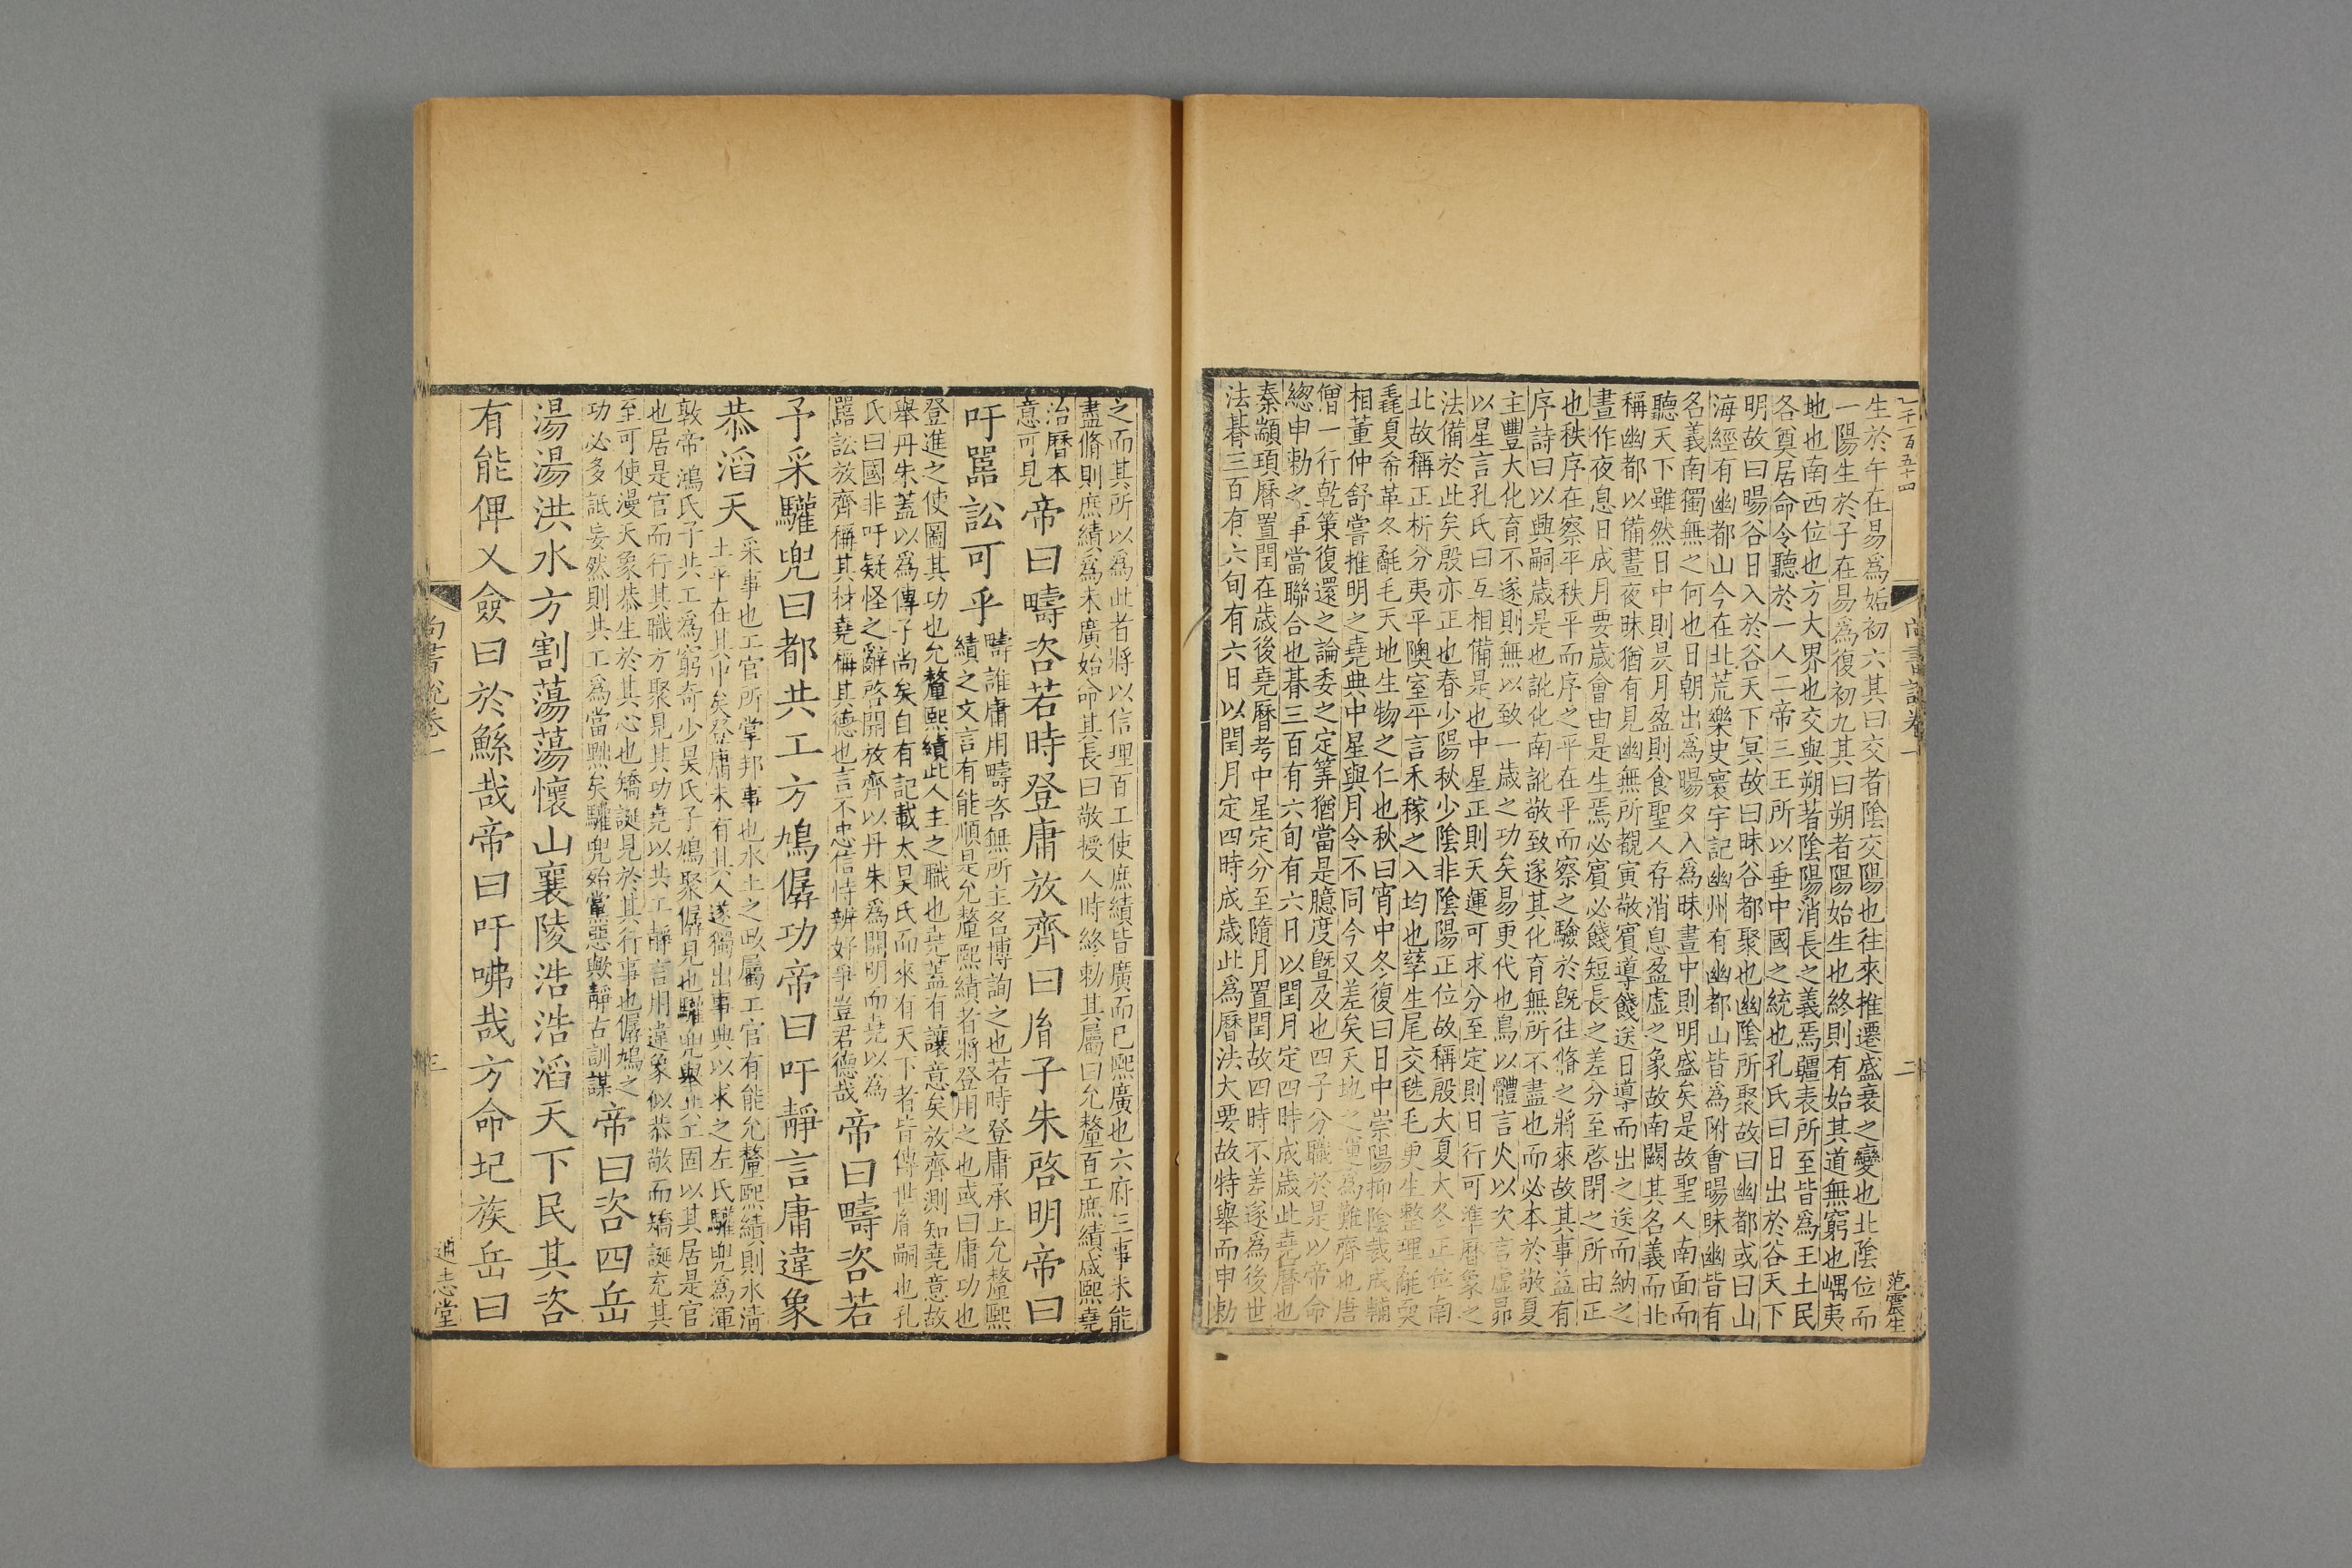 一千一百五十四
尚書說卷一
二
范震生
生於午在易爲姤初六其曰交者陰交陽也往來推遷盛衰之變也北陰位而
一陽生於子在易爲復初九其曰朔者陽始生也終則有始其道無窮也嵎夷
地也南西位也方大界也交與朔著陰陽消長之義焉疆表所至皆爲王土民
各奠居命令聽於一人二帝三王所以垂中國之統也孔氏曰日出於谷天下
明故曰暘谷日入於谷天下冥故曰昧谷都聚也幽陰所聚故曰幽都或曰山
海經有幽都山今在北荒樂史寰宇記幽州有幽都山皆爲附會暘昧幽皆有
名義南獨無之何也日朝出爲暘夕入爲昧晝中則明盛矣是故聖人南面而
聽天下雖然日中則昃月盈則食聖人存消息盈虛之象故南闕其名義而北
稱幽都以備晝夜昧猶有見幽無所覩寅敬賓導餞送日導而出之送而納之
晝作夜息日成月要歲會由是生焉必賓必餞短長之差分至啓閉之所由正
也秩序在察平秩平而序之平在平而察之驗於旣往脩之將來故其事益有
序詩曰以興嗣歲是也訛化南訛敬致遂其化育無所不盡也而必本於敬夏
主豐大化育不遂則無以致一歲之功矣易更代也鳥以體言火以次言虛昴
以星言孔氏曰互相備是也中星正則天運可求分至定則日行可準曆象之
法備於此矣殷亦正也春少陽秋少陰非陰陽正位故稱殷大夏大冬正位南
北故稱正析分夷平隩室平言禾稼之入均也孳生尾交毨毛更生整理氄耎
毳夏希革冬氄毛天地生物之仁也秋曰宵中冬復曰日中崇陽抑陰裁成輔
相董仲舒嘗推明之堯典中星與月令不同今又差矣天地之運爲難齊也唐
僧一行乾策復還之論委之定筭猶當是臆度曁及也四子分職於是以帝命
緫申勑之事當聯合也朞三百有六旬有六日以閏月定四時成歲此堯曆也
秦顓頊曆置閏在歲後堯曆考中星定分至隨月置閏故四時不差遂爲後世
法朞三百有六旬有六日以閏月定四時成歲此爲曆法大要故特舉而申勑
之而其所以爲此者將以信理百工使庶績皆廣而已熙廣也六府三事未能
盡脩則庶績爲未廣始命其長曰敬授人時終勑其屬曰允釐百工庶績咸熙堯
治曆本
意可見
帝曰疇咨若時登庸放齊曰胤子朱啓明帝曰
吁嚚訟可乎
疇誰庸用疇咨無所主名博詢之也若時登庸承上允釐熙
績之文言有能順是允釐熙績者將登用之也或曰庸功也
登進之使圖其功也允釐熙績此人主之職也堯蓋有讓意矣放齊測知堯意故
舉丹朱蓋以爲傳子尚矣自有記載太昊氏而來有天下者皆傳世胤嗣也孔
氏曰國非吁疑怪之辭啓開放齊以丹朱爲開明而堯以爲
嚚訟放齊稱其材堯稱其德也言不忠信恃辨好爭豈君德哉
帝曰疇咨若
予采驩兜曰都共工方鳩僝功帝曰吁靜言庸違象
恭滔天
采事也工官所掌邦事也水土之政屬工官有能允釐熙績則水淸
土平在其中矣登庸未有其人遂獨出事典以求之左氏驩兜爲渾
敦帝鴻氏子共工爲窮奇少昊氏子鳩聚僝見也驩兜與共工固以其居是官
也居是官而行其職方聚見其功堯以共工靜言用違象似恭敬而矯誕充其
至可使漫天象恭生於其心也矯誕見於其行事也僝鳩之
功必多詆妄然則共工為當黜矣驩兜始黨惡歟靜古訓謀
帝曰咨四岳
湯湯洪水方割蕩蕩懷山襄陵浩浩滔天下民其咨
有能俾乂僉曰於鯀哉帝曰吁咈哉方命圮族岳曰
尚書說卷一
三
通志堂